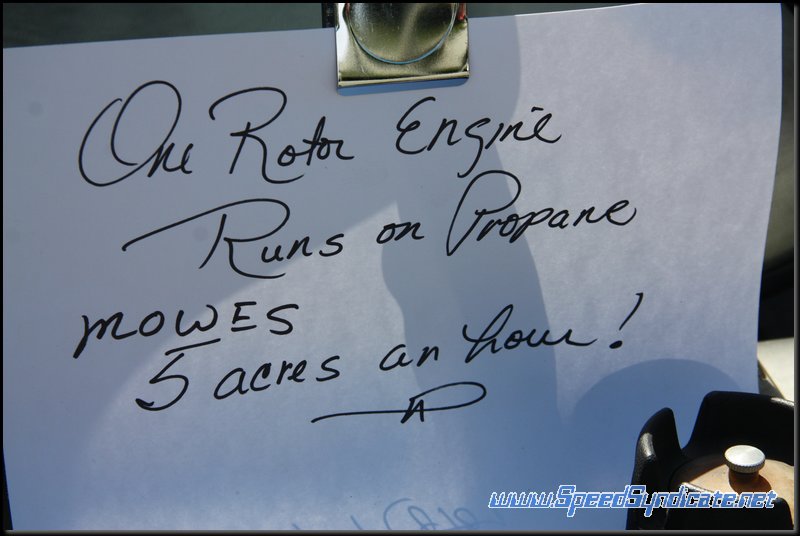 One Rotor Engine
Runs on Propane
MOWES
5 acres an hour!
www.SpeedSyndicate.net